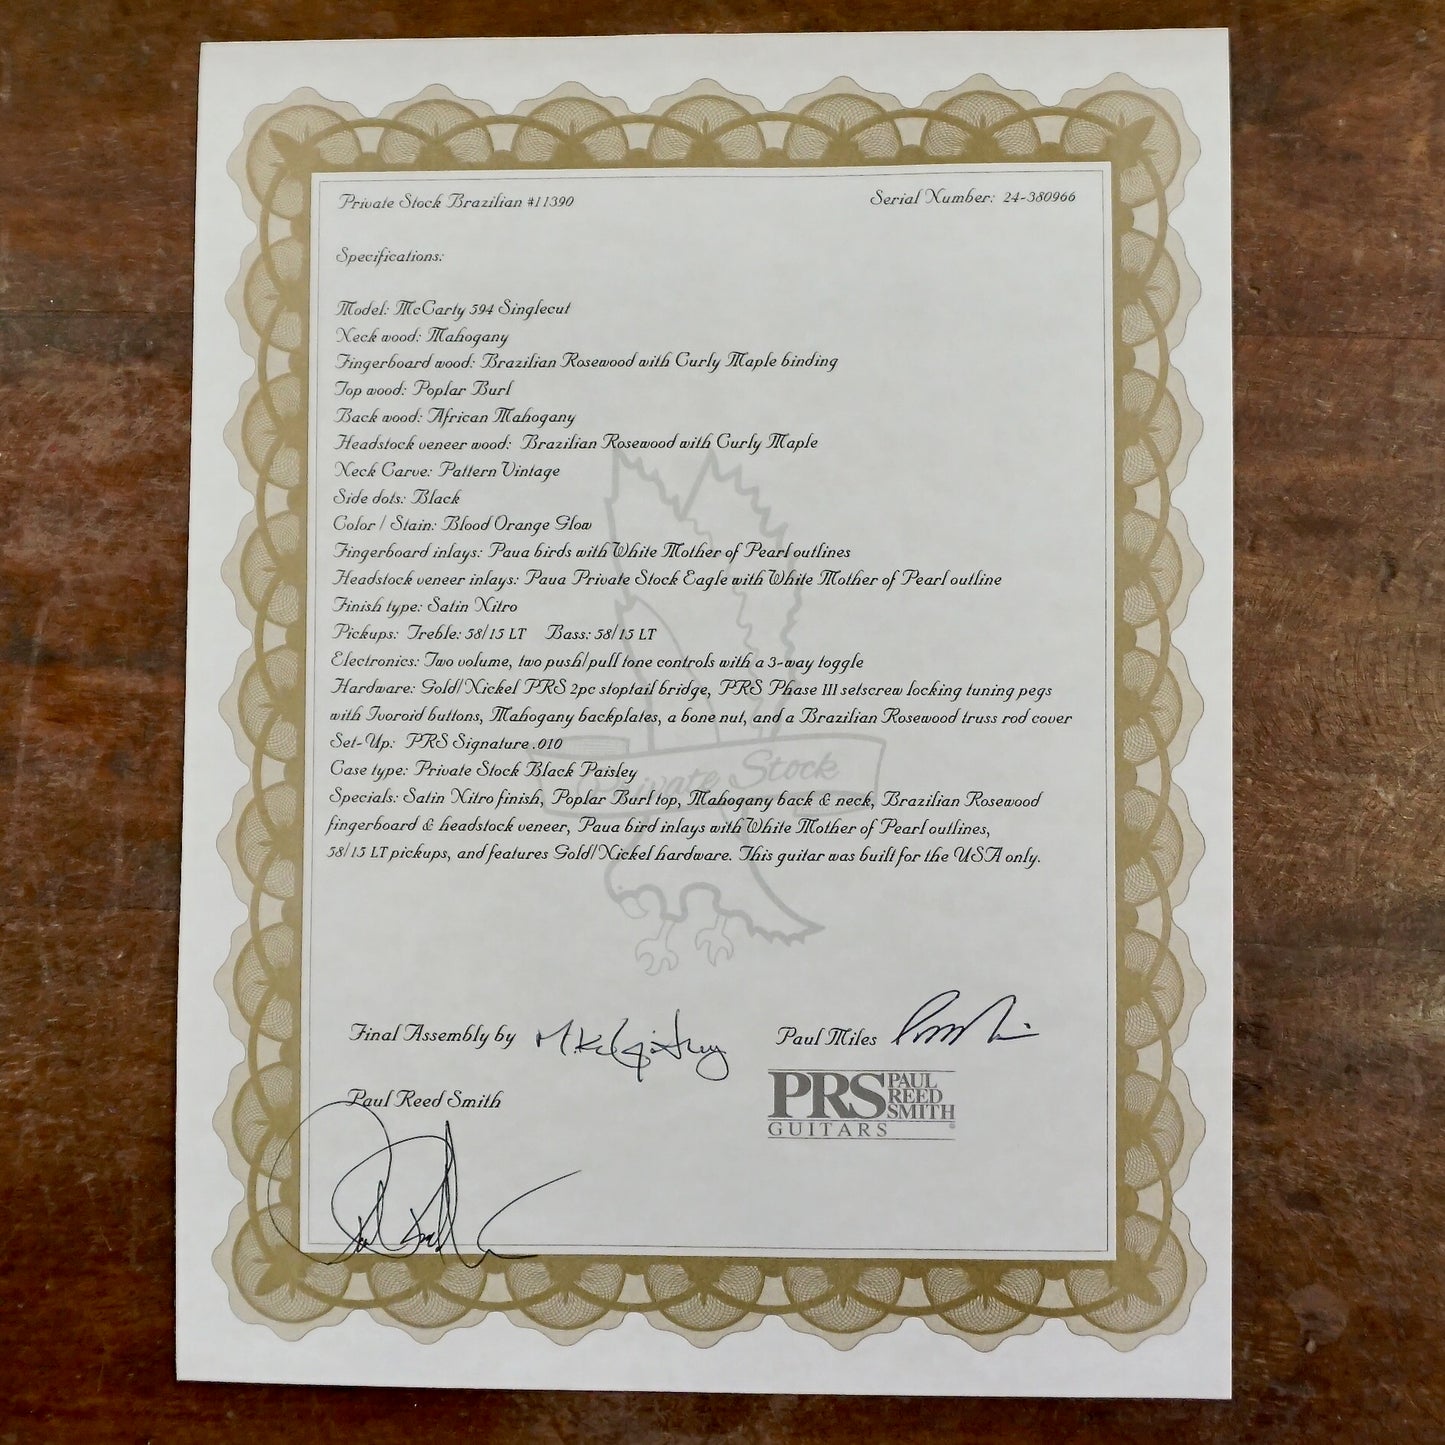 Private Stock Brazilian #11390
Serial Number: 24-380966
Specifications:
Model: McCarty 594 Singlecut
Neck wood: Mahogany
Fingerboard wood: Brazilian Rosewood with Curly Maple binding
Top wood: Poplar Burl
Back wood: African Mahogany
Headstock veneer wood: Brazilian Rosewood with Curly Maple
Neck Carve: Pattern Vintage
Side dots: Black
Color / Stain: Blood Orange Glow
Fingerboard inlays: Paua birds with White Mother of Pearl outlines
Headstock veneer inlays: Paua Private Stock Eagle with White Mother of Pearl outline
Finish type: Satin Nitro
Pickups: Treble: 58/15 LT Bass: 58/15 LT
Electronics: Two volume, two push/pull tone controls with a 3-way toggle
Hardware: Gold/Nickel PRS 2pc stoptail bridge, PRS Phase III setscrew locking tuning pegs
with Ivoroid buttons, Mahogany backplates, a bone nut, and a Brazilian Rosewood truss rod cover
Set-Up: PRS Signature .010
Case type: Private Stock Black Paisley
Private Stock
Specials: Satin Nitro finish, Poplar Burl top, Mahogany back & neck, Brazilian Rosewood
fingerboard & headstock veneer, Paua bird inlays with White Mother of Pearl outlines,
58/15 LT pickups, and features Gold/Nickel hardware. This guitar was built for the USA only.
Final Assembly by
Paul Miles
Paul Reed Smith
PRS PAUL
REED
SMITH
GUITARS